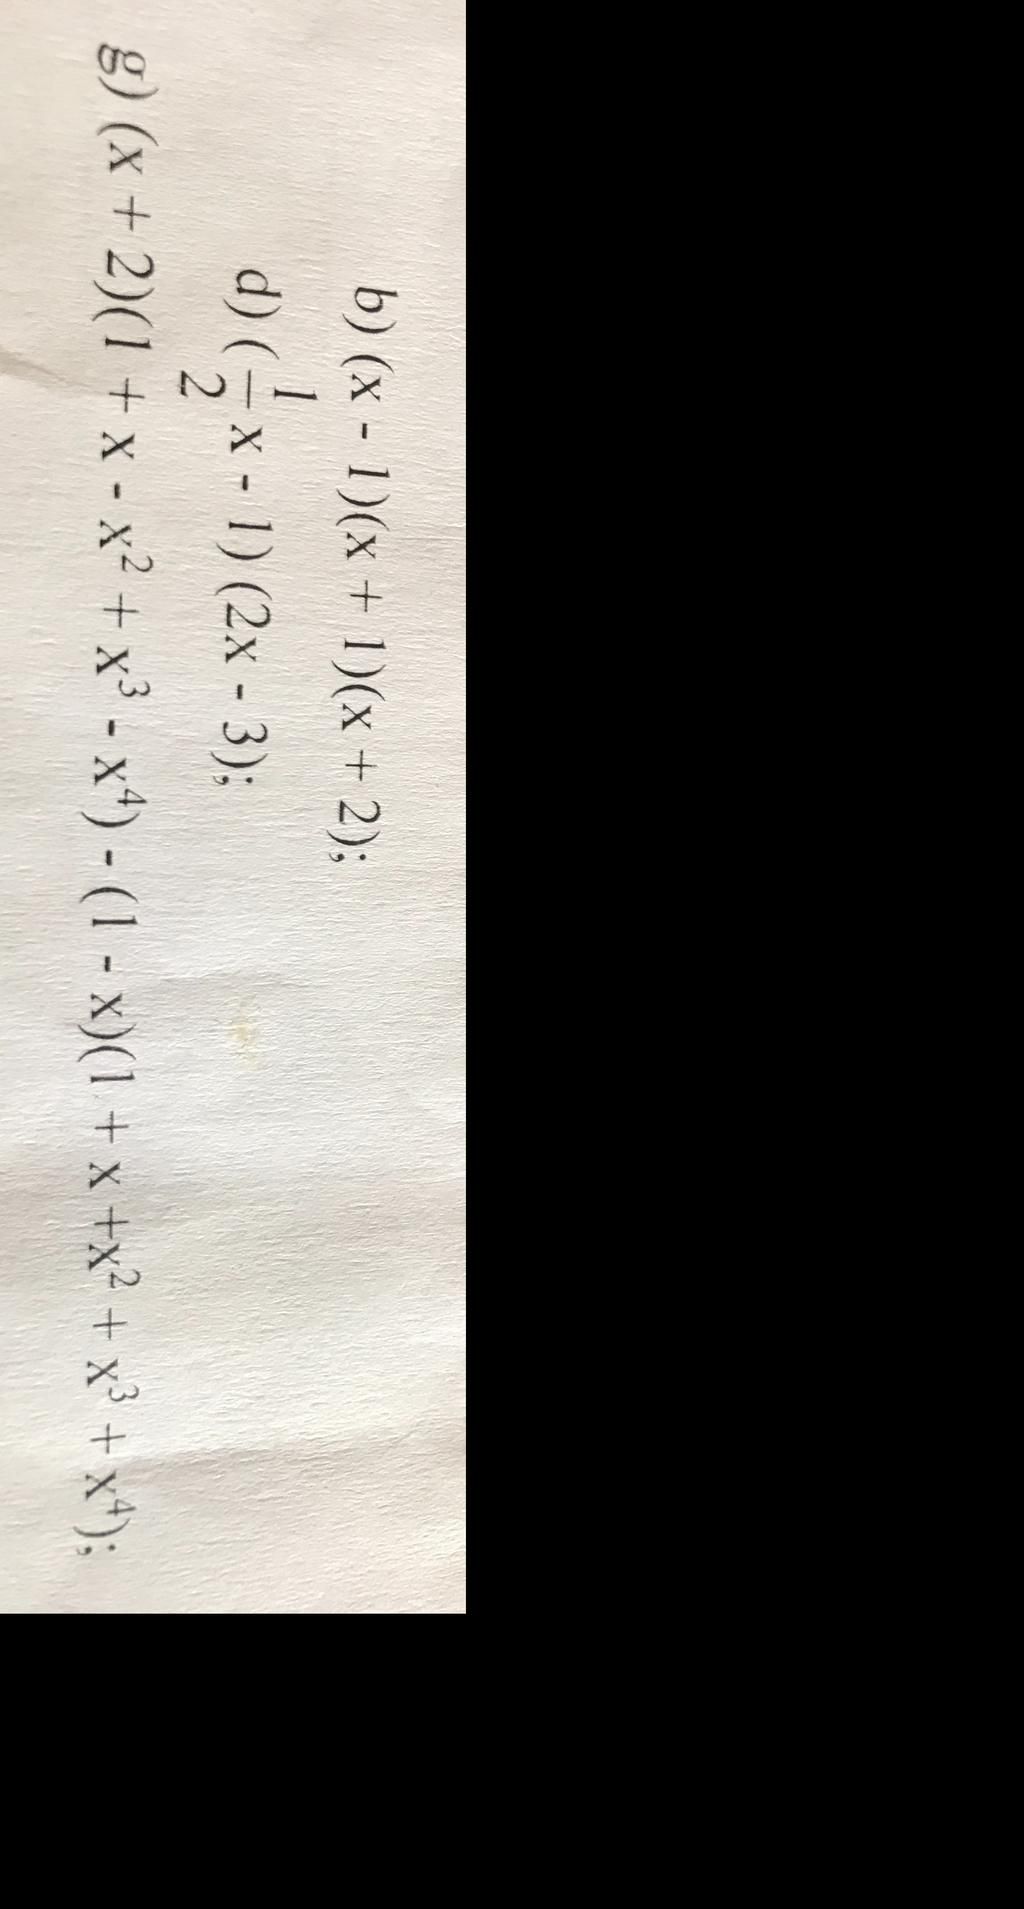 b) (x - 1)(x + 1)(x + 2);
d) (1/2 x - 1) (2x - 3);
g) (x + 2)(1 + x - x² + x³ - x⁴) - (1 - x)(1 + x +x² + x³ + x⁴);